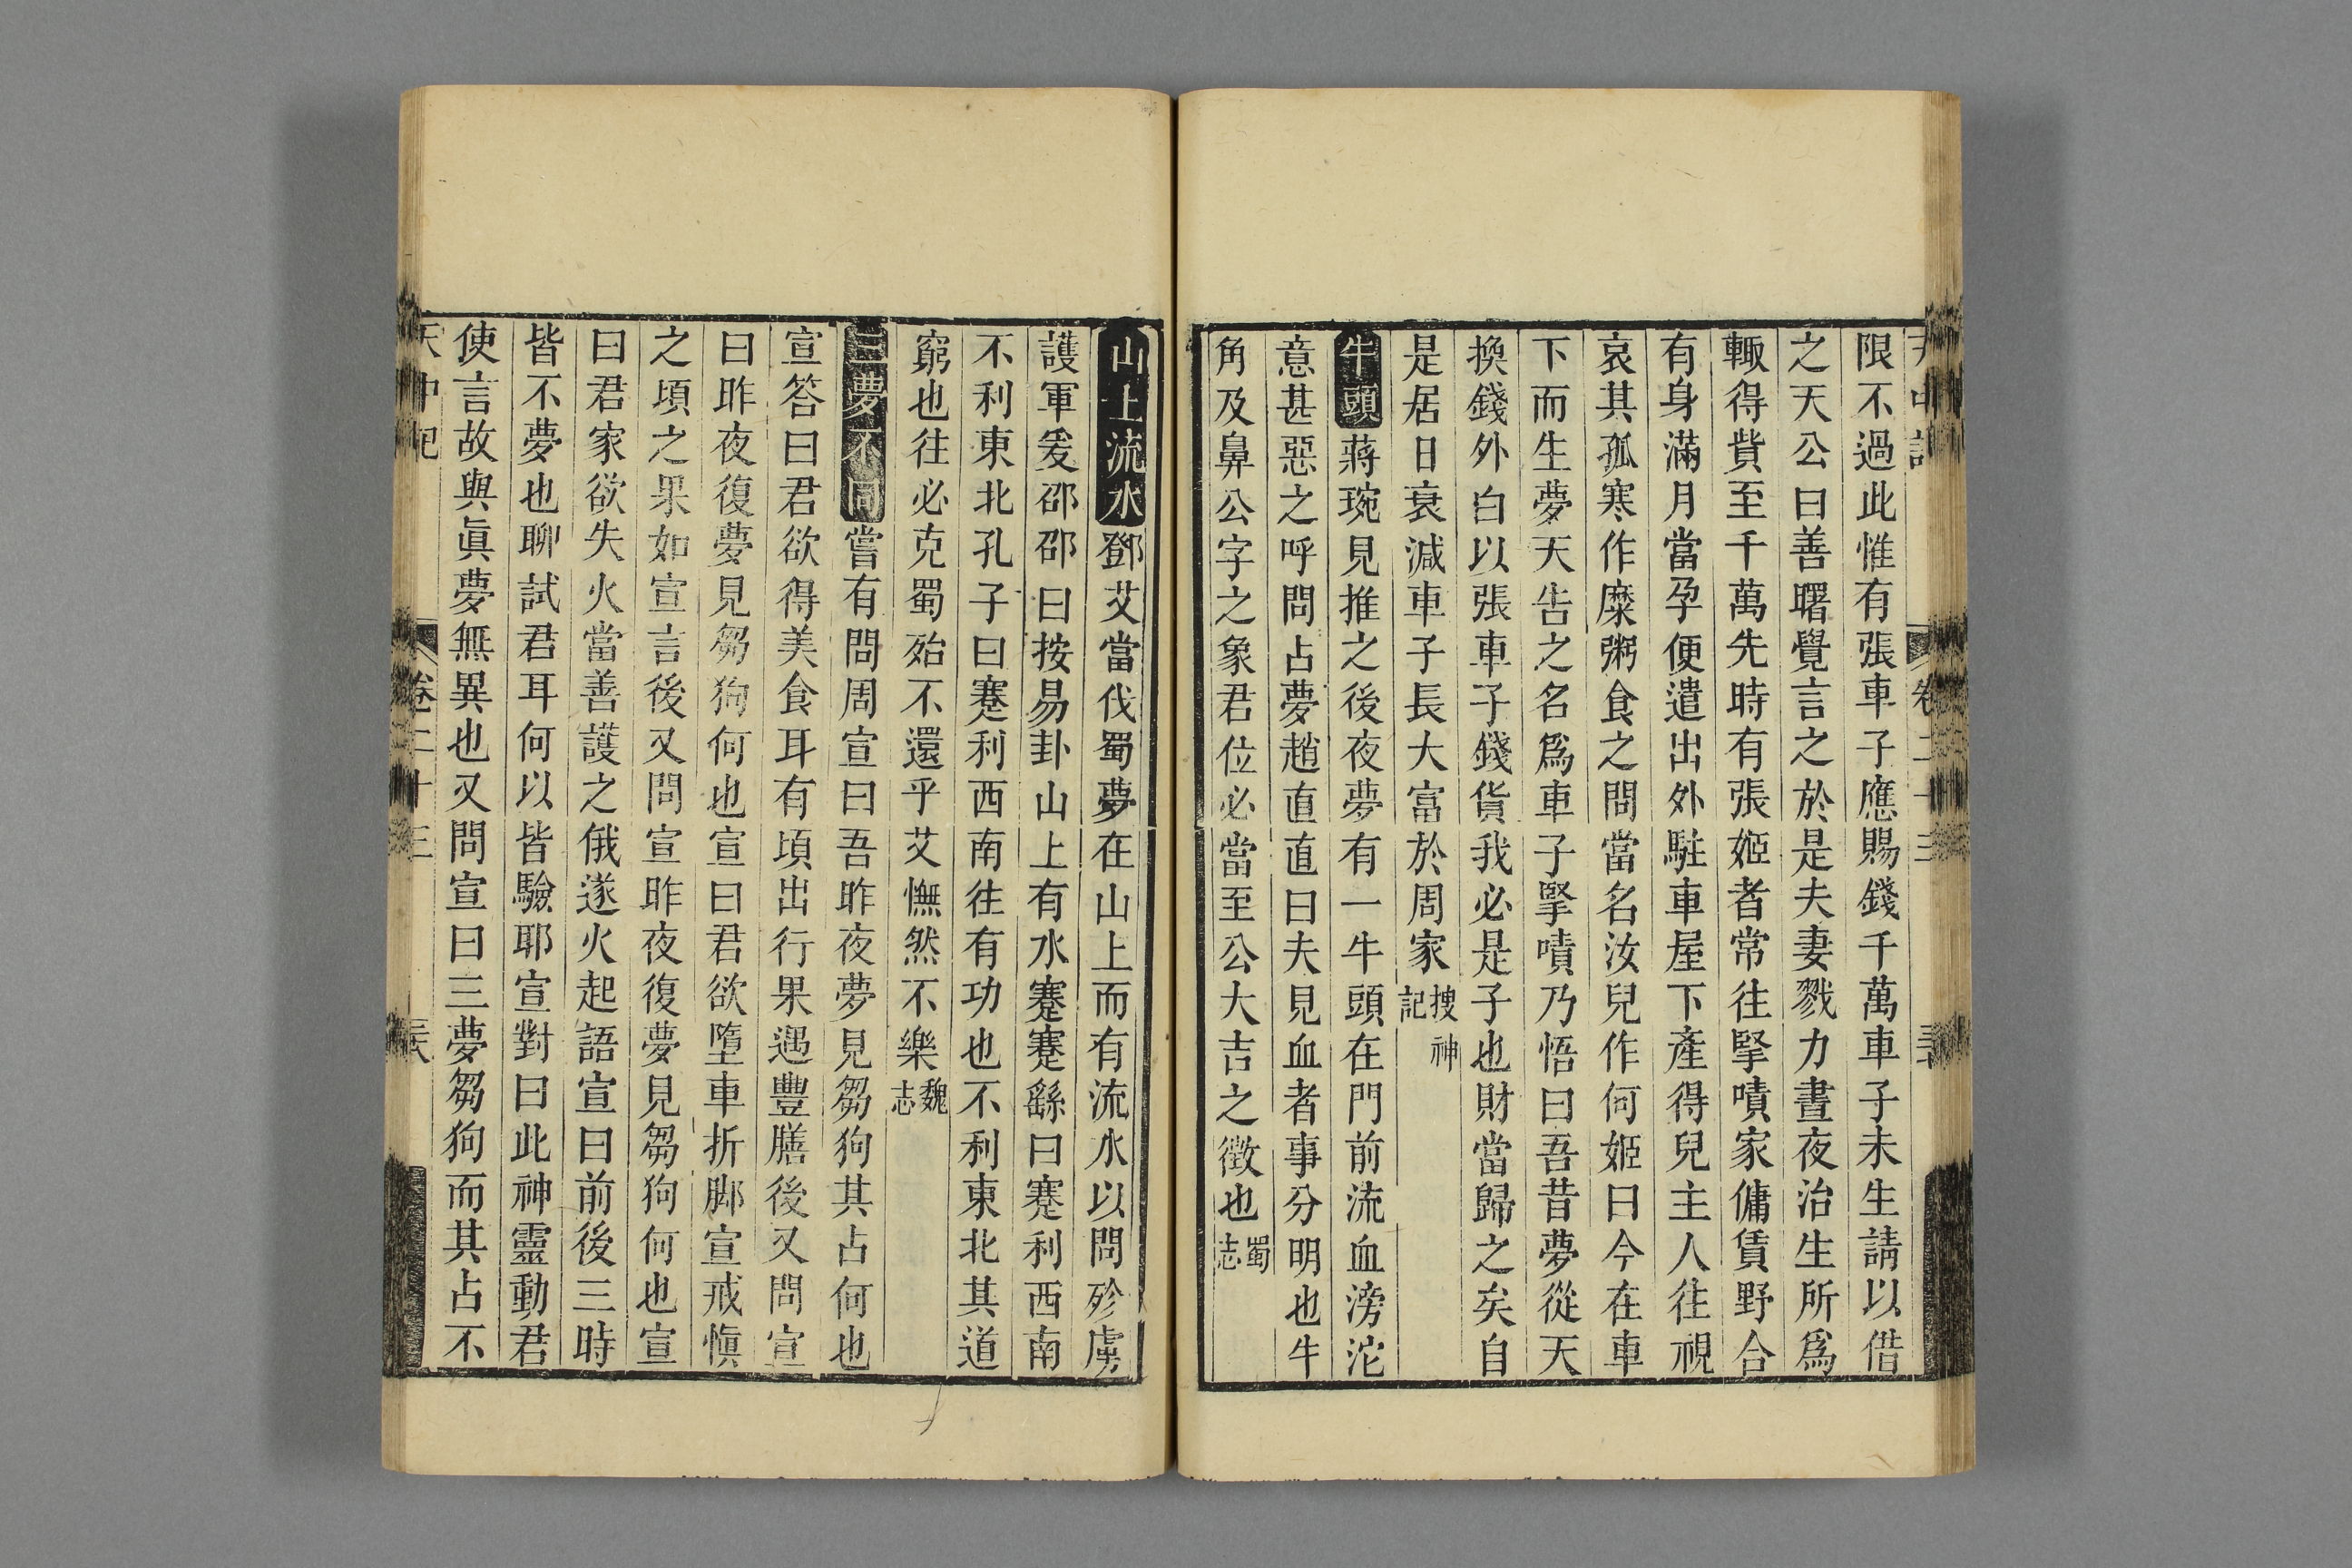 限不過此惟有張車子應賜錢千萬車子未生請以借
之天公曰善曙覺言之於是夫妻戮力晝夜治生所爲
輙得貲至千萬先時有張姬者常往擥嘖家傭賃野合
有身滿月當孕便遣出外駐車屋下產得兒主人往視
哀其孤寒作糜粥食之問當名汝兒作何姬曰今在車
下而生夢天告之名爲車子擥嘖乃悟曰吾昔夢從天
換錢外白以張車子錢貨我必是子也財當歸之矣自
是居日衰減車子長大富於周家搜神記
牛頭蔣琬見推之後夜夢有一牛頭在門前流血滂沱
意甚惡之呼問占夢趙直直曰夫見血者事分明也牛
角及鼻公字之象君位必當至公大吉之徵也蜀志
山上流水鄧艾當伐蜀夢在山上而有流水以問殄虜
護軍爰邵邵曰按易卦山上有水蹇蹇繇曰蹇利西南
不利東北孔子曰蹇利西南往有功也不利東北其道
窮也往必克蜀殆不還乎艾憮然不樂魏志
三夢不同嘗有問周宣曰吾昨夜夢見芻狗其占何也
宣答曰君欲得美食耳有頃出行果遇豐膳後又問宣
曰昨夜復夢見芻狗何也宣曰君欲墮車折脚宣戒慎
之頃之果如宣言後又問宣昨夜復夢見芻狗何也宣
曰君家欲失火當善護之俄遂火起語宣曰前後三時
皆不夢也聊試君耳何以皆驗耶宣對曰此神靈動君
使言故與眞夢無異也又問宣曰三夢芻狗而其占不
天中記 卷二十三